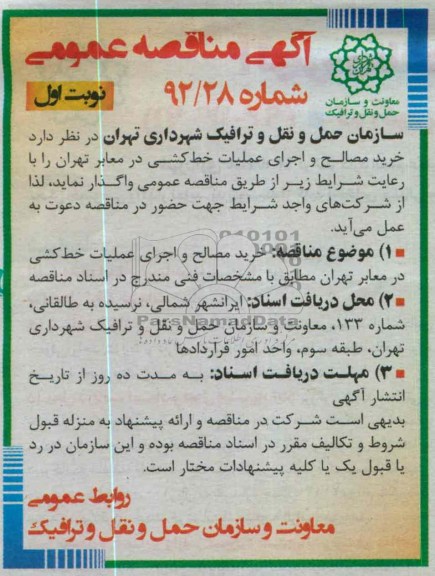 آگهی مناقصه عمومی
شماره ۹۲/۲۸
نوبت اول
معاونت و سازمان
حمل و نقل و ترافیک
سازمان حمل و نقل و ترافیک شهرداری تهران در نظر دارد
خرید مصالح و اجرای عملیات خط‌کشی در معابر تهران را با
رعایت شرایط زیر از طریق مناقصه عمومی واگذار نماید، لذا
از شرکت‌های واجد شرایط جهت حضور در مناقصه دعوت به
عمل می‌آید.
۱) موضوع مناقصه: خرید مصالح و اجرای عملیات خط‌کشی
در معابر تهران مطابق با مشخصات فنی مندرج در اسناد مناقصه
۲) محل دریافت اسناد: ایرانشهر شمالی، نرسیده به طالقانی،
شماره ۱۳۳، معاونت و سازمان حمل و نقل و ترافیک شهرداری
تهران، طبقه سوم، واحد امور قراردادها
۳) مهلت دریافت اسناد: به مدت ده روز از تاریخ
انتشار آگهی
بدیهی است شرکت در مناقصه و ارائه پیشنهاد به منزله قبول
شروط و تکالیف مقرر در اسناد مناقصه بوده و این سازمان در رد
یا قبول یک یا کلیه پیشنهادات مختار است.
روابط عمومی
معاونت و سازمان حمل و نقل و ترافیک
ParsNamadData